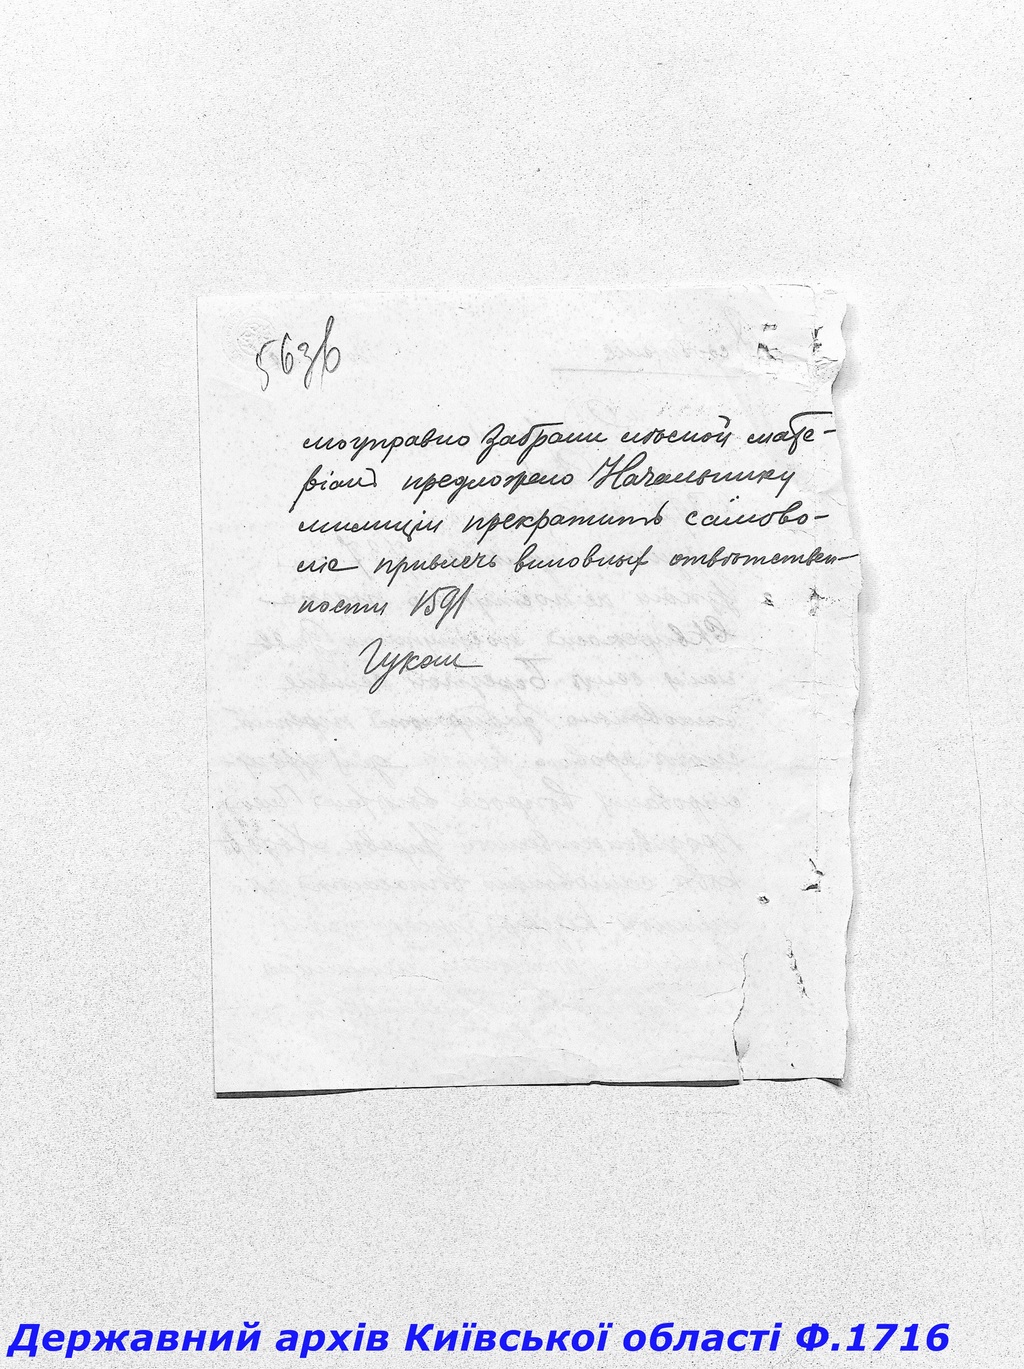 563б
моуправно забрали лѣсной мате-
ріал предложено Начальнику
милиціи прекратить самово-
ліе привлечь виновных отвѣтствен-
ности 1591
Гукош
Державний архів Київської області Ф.1716